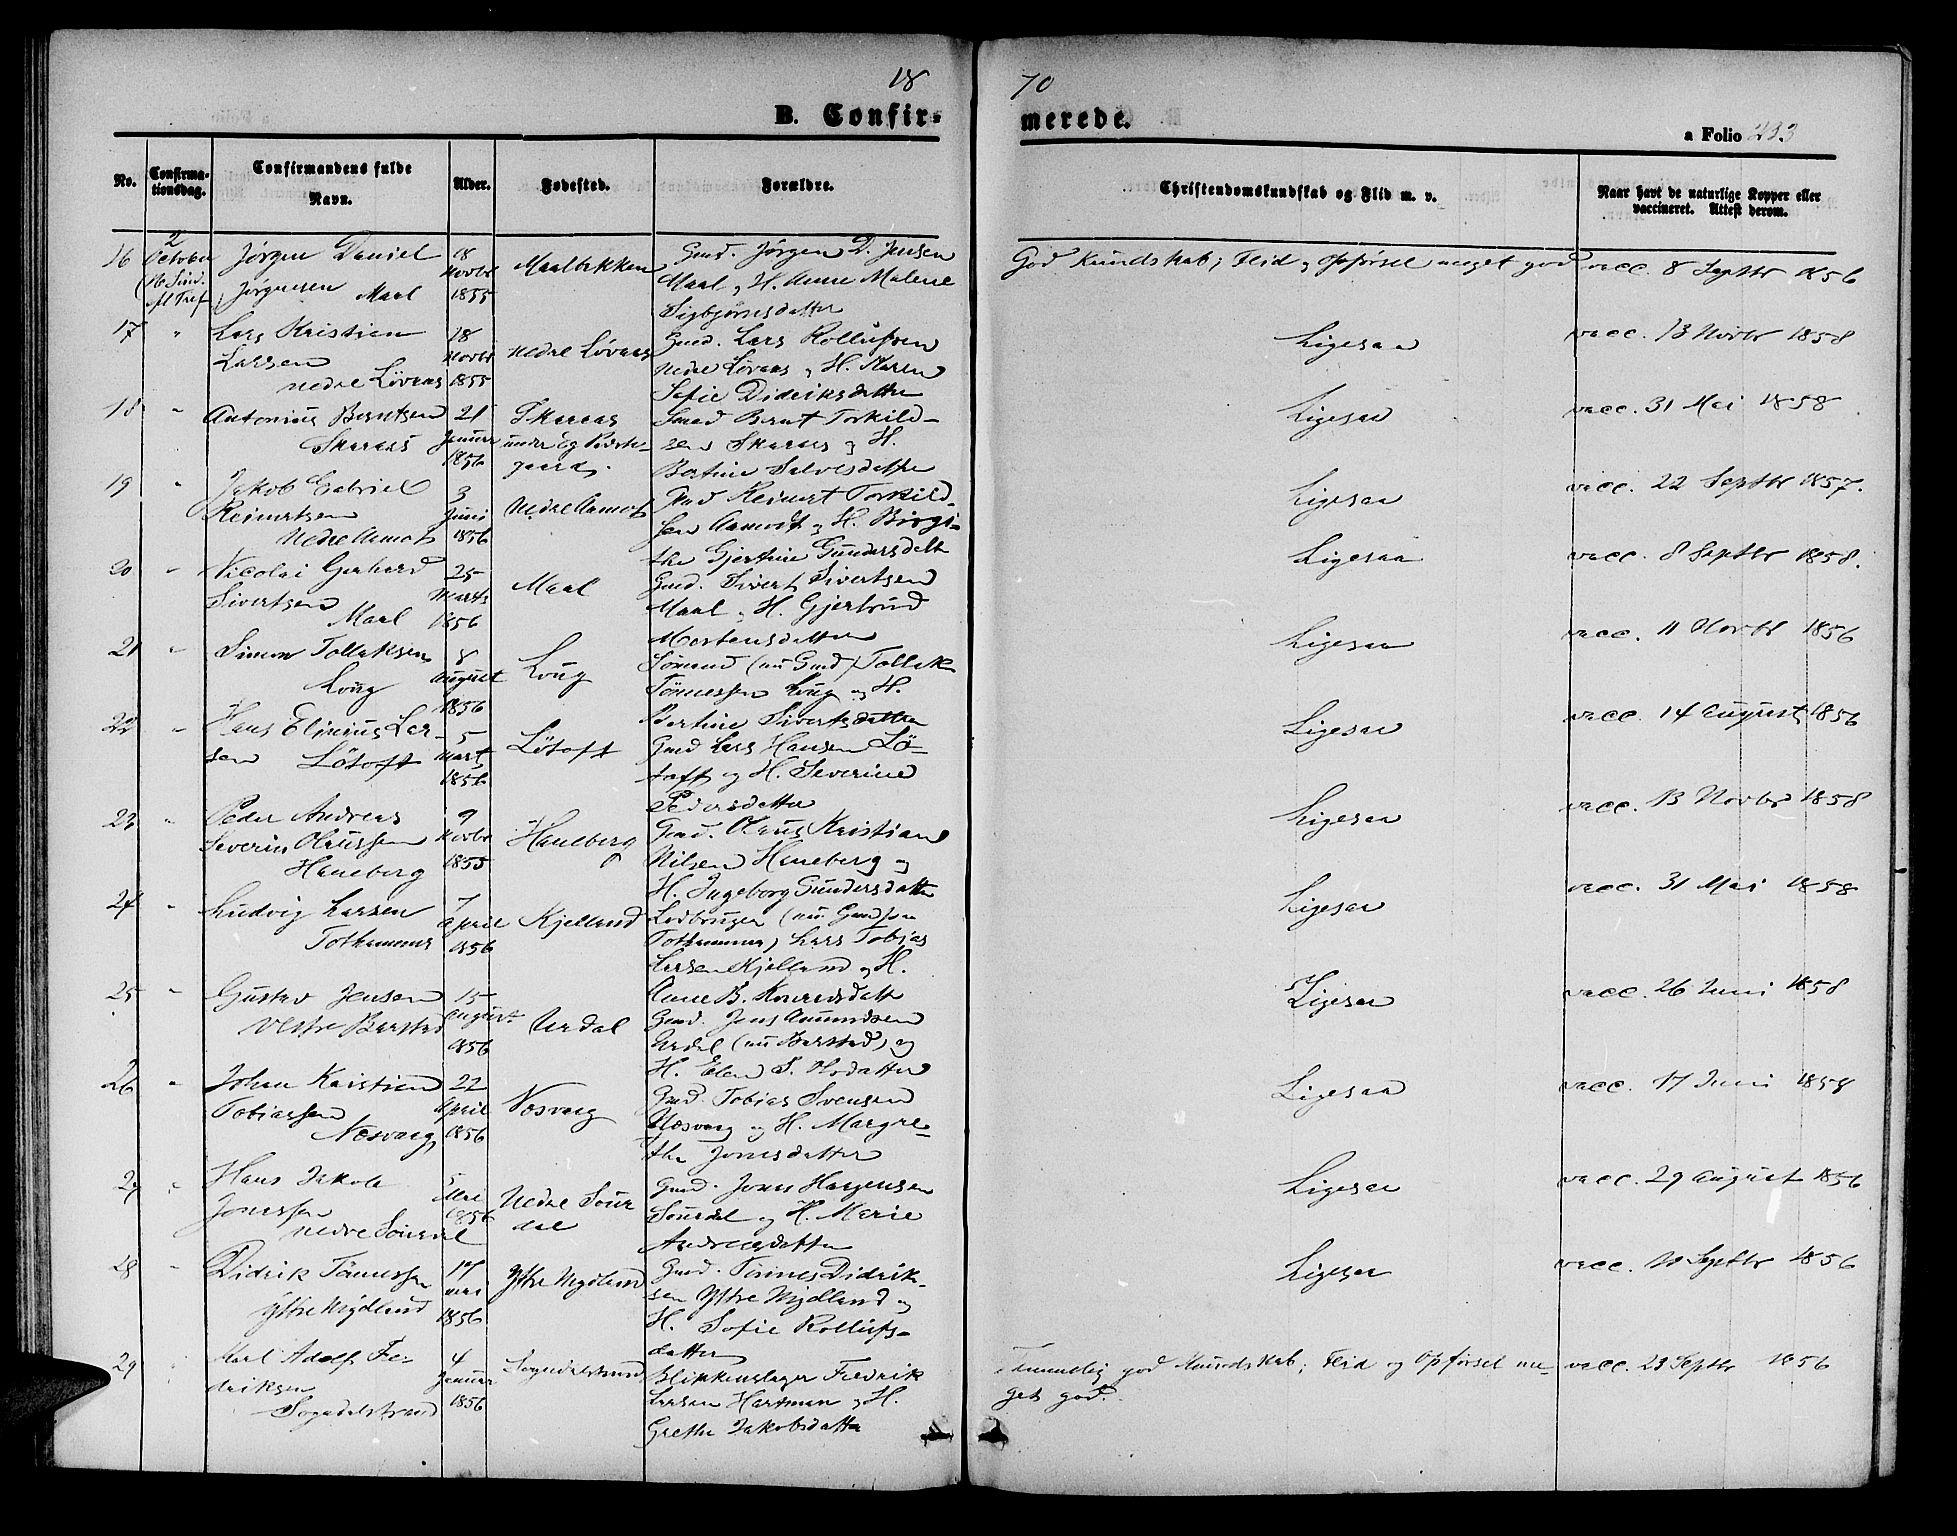 18 70
B. Confirmerede.
a Folio 233
No.
Confirmationsdag.
Confirmandens fulde Navn.
Alder.
Fødested.
Forældre.
Christendomskundskab og Flid m. v.
Naar havt de naturlige Kopper eller vaccineret. Attest derom.
16
2 October
16 Sønd.
Jørgen Daniel
Jørgensen Maal
18 Novbr 1855
Maalbekken
Gmd. Jørgen D. Jensen
Maal og H. Anne Malene
Sigbjørnsdatter
God Kundskab; Flid og Opførsel meget god
vacc. 8 Septbr 1856
17 "
Lars Kristian
Larsen
nedre Løvaas
18 Novbr 1855
nedre Løvaas
Gmd. Lars Rollufsen
nedre Løvaas og H. Karen
Sofie Didriksdatter
Ligesaa
vacc. 13 Novbr 1858
18 "
Antonius Berntsen
Skaraas
21 Januar 1856
Skaraas
under Eg Præste-
gaard.
Gmd Bernt Torkild-
sen Skaraas og H.
Bertine Salvesdatter
Ligesaa
vacc. 31 Mai 1858
19 "
Jakob Gabriel
Reinertsen
Nedre Aamot
3 Juni 1856
Nedre Aamot
Gmd Reinert Torkild-
sen Aamodt og H. Birgi-
the Gjertine Gundersdatt
Ligesaa
vacc. 22 Septbr 1857.
20 "
Nicolai Gerhard
Sivertsen
Maal
25 Marts 1856
Maal
Gmd. Sivert Sivertsen
Maal og H. Gjertrud
Mortensdatter
Ligesaa
vacc. 8 Septbr 1858.
21 "
Simon Tollaksen
Loug
8 August 1856
Loug
Sømand (nu Gmd) Tollak
Tönnessen Loug og H.
Bertine Sivertsdatter
Ligesaa
vacc. 11 Novbr 1856
22 "
Hans Elinius Lar-
sen Løtoft
5 Marts 1856
Løtoft
Gmd Lars Hansen Lö-
toft og H. Severine
Pedersdatter
Ligesaa
vacc. 14 August 1856
23 "
Peder Andreas
Severin Olaussen
Haneberg
9 Novbr 1855
Haneberg
Gmd. Olaus Kristian
Nilsen Haneberg og
H. Ingeborg Gundersdatt
Ligesaa
vacc. 13 Novbr 1858
24 "
Ludvig Larsen
Tothammer
7 April 1856
Kjelland
(nu Gmd) paa
Tothammer) Lars Tobias
Larsen Kjelland og H.
Anne B. Konradsdatt
Ligesaa
vacc. 31 Mai 1858
25 "
Gustav Jensen
Vestre Barstad
15 August 1856
Urdal
Gmd. Jens Aamundsen
Urdal (nu Barstad) og
H. Elen S. Olsdatter
Ligesaa
vacc. 26 Juni 1858
26 "
Johan Kristian
Tobiassen
Næsvarg
22 April 1856
Næsvarg
Gmd. Tobias Svensen
Næsvarg og H. Margre-
the Jonasdatter
Ligesaa
vacc. 17 Juni 1858
27 "
Hans Jakob
Jonassen
nedre Sourdal
5 Mai 1856
Nedre Sour
dal
Gmd. Jonas
Sourdal og H. Marie
Andreasdatter
Ligesaa
vacc. 29 August 1856
28 "
Didrik Tönnessen
Ystre Mydland
17 Mai 1856
Ystre Mydland
Gmd. Tönnes Didrik-
sen Ystre Mydland og
H. Sofie Rollufs-
datter
Ligesaa
vacc. Septbr 1856
29 "
Karl Adolf Fe-
driksen
Sogndalstrand
4 Januar 1856
Sogndalstrand
Blikkenslager Fredrik
Larsen Hartman og H.
Grethe Jakobsdatter
Temmelig god Kundskab; Flid og Opførsel me-
get god.
vacc. 23 Septbr 1856